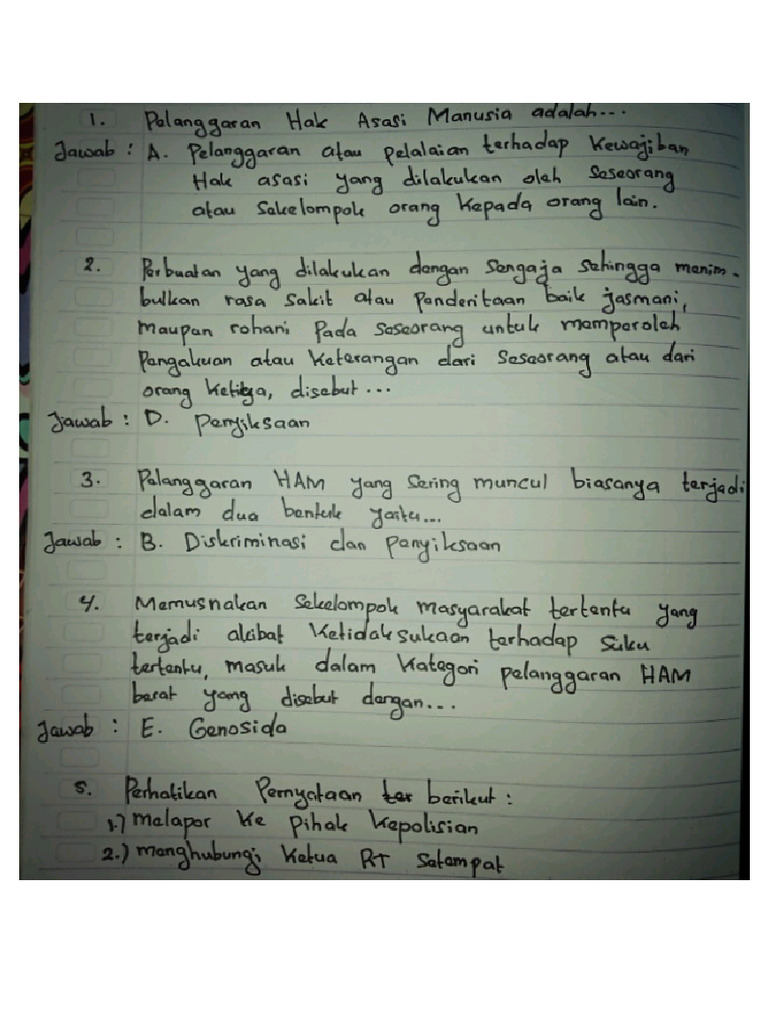 1. Pelanggaran Hak Asasi Manusia adalah...
Jawab : A. Pelanggaran atau pelalaian terhadap kewajiban
Hak asasi yang dilakukan oleh Seseorang
atau Sekelompok orang kepada orang lain.
2. Perbuatan yang dilakukan dengan Sengaja Sehingga menim-
bulkan rasa sakit atau Penderitaan baik jasmani,
maupan rohani Pada Seseorang untuk memperoleh
Pengakuan atau Keterangan dari Seseorang atau dari
orang Ketiga, disebut...
Jawab : D. Penyiksaan
3. Pelanggaran HAM yang Sering muncul biasanya terjadi
dalam dua bentuk yaitu...
Jawab : B. Diskriminasi dan Penyiksaan
4. Memusnakan Sekelompok masyarakat tertentu yang
terjadi akibat Ketidak sukaan terhadap Suku
tertentu, masuk dalam Kategori pelanggaran HAM
berat yang disebut dengan...
Jawab : E. Genosida
5. Perhatikan Pernyataan ter berikut :
1.) melapor ke pihak kepolisian
2.) menghubungi Ketua RT Setempat